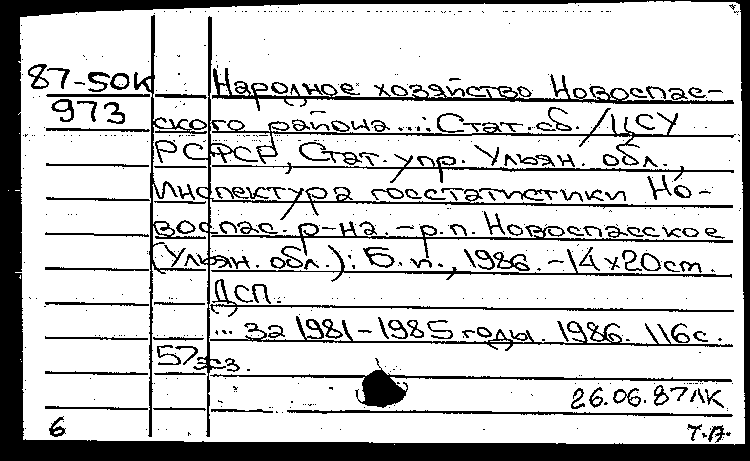 87-50К Народное хозяйство Новоспас-
973
ского района...: Стат. сб. / ЦСУ
РСФСР, Стат. упр. Ульян. обл.,
Инспектура госстатистики Но-
воспас. р-на. - р.п. Новоспасское
(Ульян. обл.): Б. и., 1986. - 14 x 20 см.
ДСП.
... за 1981-1985 годы. 1986. 116 с.
57 экз.
26.06.87 ЛК
6